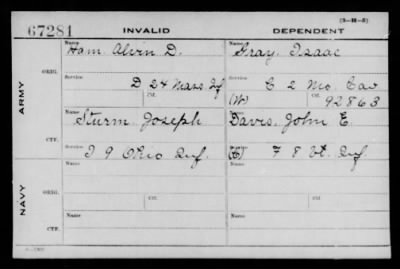 (3-111-5)
67281 INVALID DEPENDENT
Name Name
Ham, Alvin D. Gray, Isaac
ORIG. Service Service
D 24 Mass Inf C 2 Mo. Cav
Ctf. (W) Ctf. 92863
ARMY
Name Name
Sturm Joseph Davis, John E.
CTF. Service Service
I 9 Ohio Inf. F 8 Vt. Inf.
Name Name
ORIG. Service Service
Ctf. Ctf.
NAVY
Name Name
CTF. Service Service